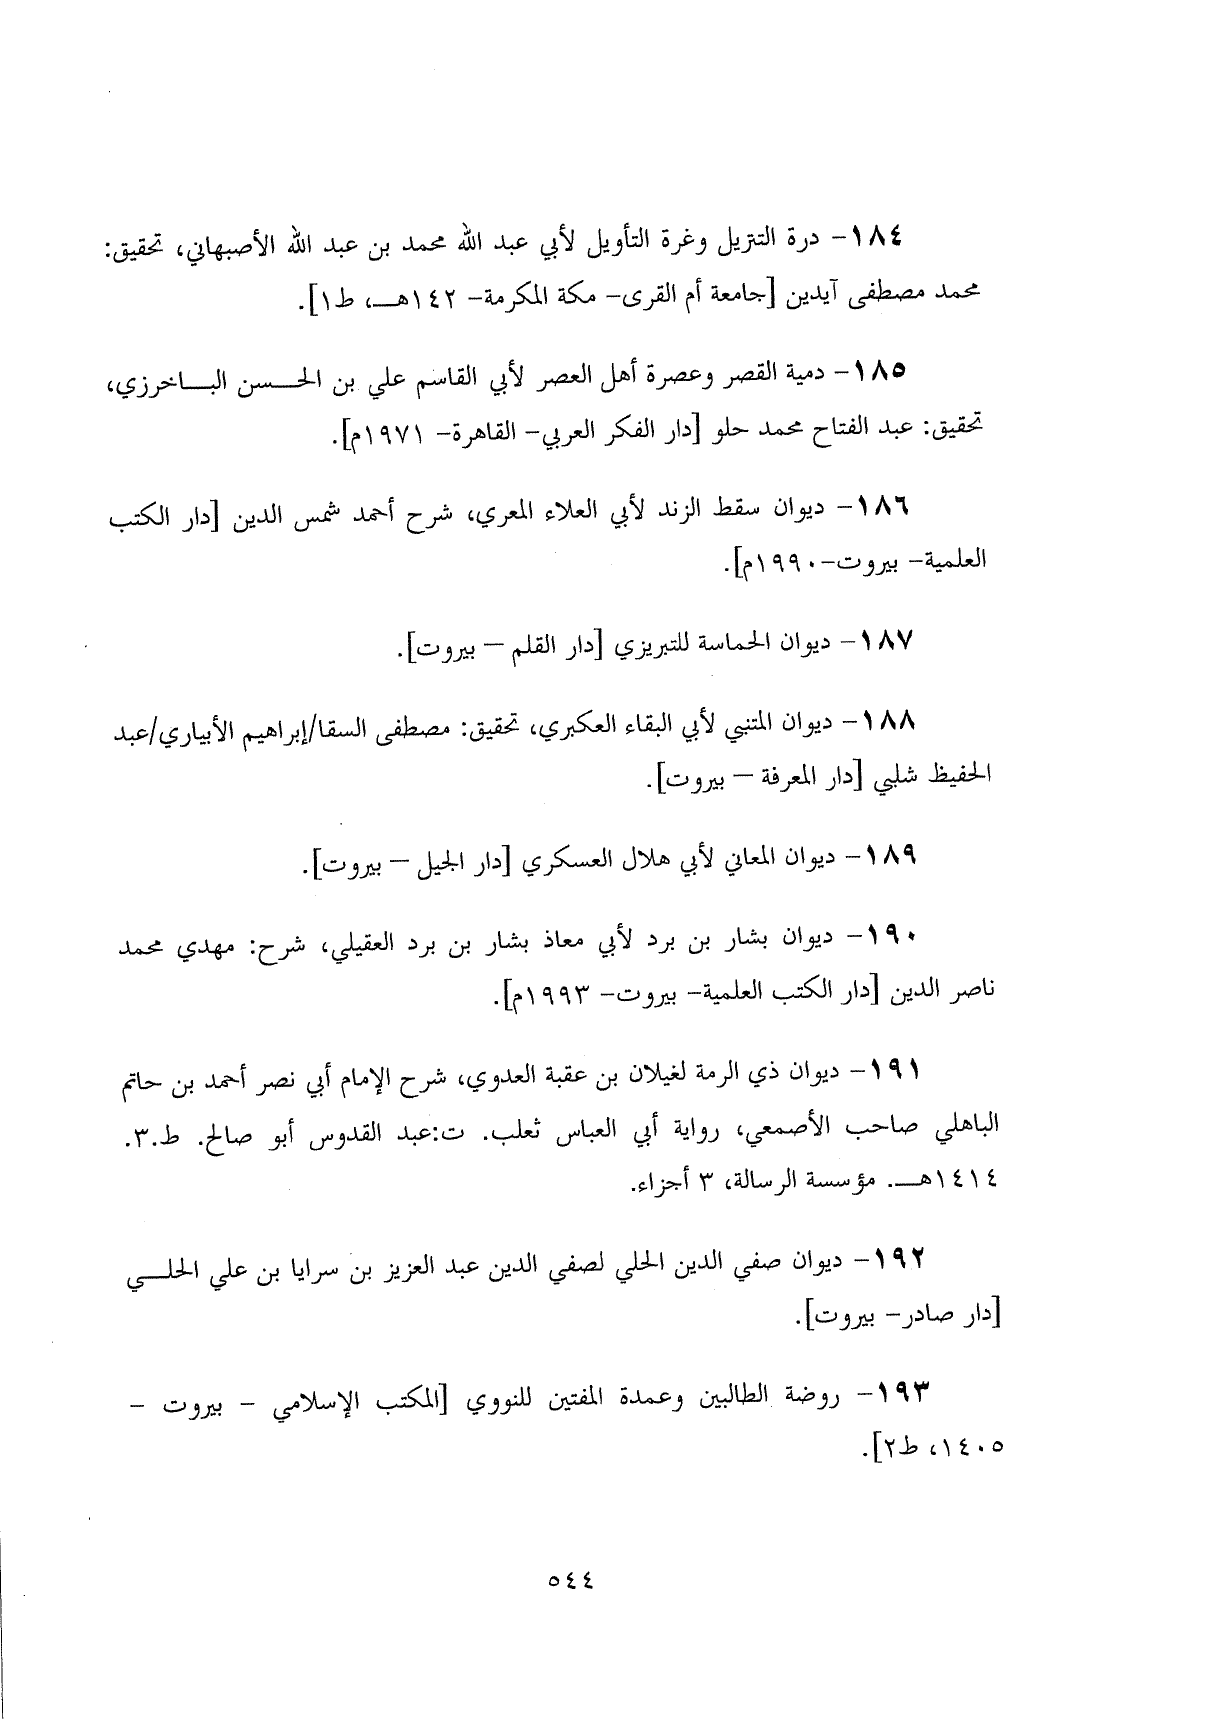 ١٨٤- درة التتريل وغرة التأويل لأبي عبد الله محمد بن عبد الله الأصبهاني، تحقيق:
محمد مصطفى آيدين [جامعة أم القرى- مكة المكرمة- ١٤٢هـ، ط١].
١٨٥- دمية القصر وعصرة أهل العصر لأبي القاسم علي بن الحسن الباخرزي،
تحقيق: عبد الفتاح محمد حلو [دار الفكر العربي- القاهرة- ١٩٧١م].
١٨٦- ديوان سقط الزند لأبي العلاء المعري، شرح أحمد شمس الدين [دار الكتب
العلمية- بيروت-١٩٩٠م].
١٨٧- ديوان الحماسة للتبريزي [دار القلم – بيروت].
١٨٨- ديوان المتنبي لأبي البقاء العكبري، تحقيق: مصطفى السقا/إبراهيم الأبياري/عبد
الحفيظ شلبي [دار المعرفة – بيروت].
١٨٩- ديوان المعاني لأبي هلال العسكري [دار الجيل – بيروت].
١٩٠- ديوان بشار بن برد لأبي معاذ بشار بن برد العقيلي، شرح: مهدي محمد
ناصر الدين [دار الكتب العلمية- بيروت- ١٩٩٣م].
١٩١- ديوان ذي الرمة لغيلان بن عقبة العدوي، شرح الإمام أبي نصر أحمد بن حاتم
الباهلي صاحب الأصمعي، رواية أبي العباس ثعلب. ت:عبد القدوس أبو صالح. ط.٣.
١٤١٤هـ. مؤسسة الرسالة، ٣ أجزاء.
١٩٢- ديوان صفي الدين الحلي لصفي الدين عبد العزيز بن سرايا بن علي الحلي
[دار صادر- بيروت].
١٩٣- روضة الطالبين وعمدة المفتين للنووي [المكتب الإسلامي - بيروت -
١٤٠٥، ط٢].
٥٤٤